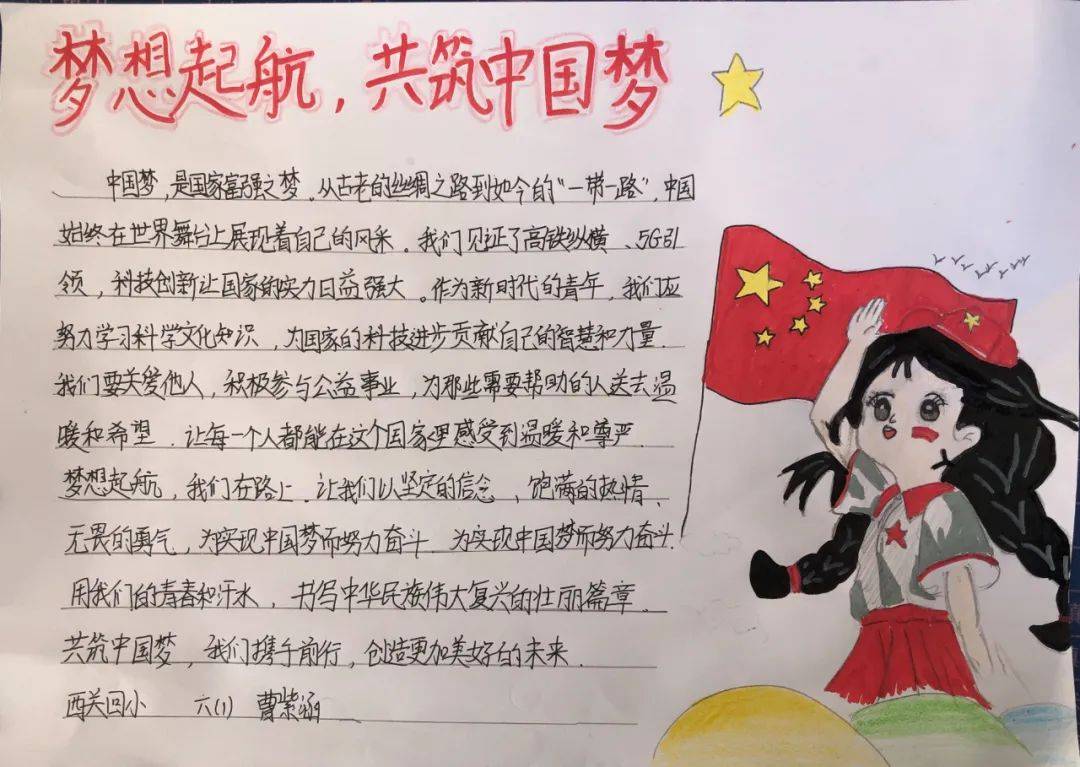 梦想起航，共筑中国梦
中国梦，是国家富强之梦。从古老的丝绸之路到如今的“一带一路”，中国
始终在世界舞台上展现着自己的风采。我们见证了高铁纵横、5G引
领，科技创新让国家的实力日益强大。作为新时代的青年，我们应
努力学习科学文化知识，为国家的科技进步贡献自己的智慧和力量.
我们要关爱他人，积极参与公益事业，为那些需要帮助的人送去温
暖和希望.让每一个人都能在这个国家里感受到温暖和尊严.
梦想起航，我们在路上.让我们以坚定的信念、饱满的热情、
无畏的勇气，为实现中国梦而努力奋斗.为实现中国梦而努力奋斗.
用我们的青春和汗水，书写中华民族伟大复兴的壮丽篇章.
共筑中国梦，我们携手前行，创造更加美好的未来.
西关回小 六(1) 曹紫涵